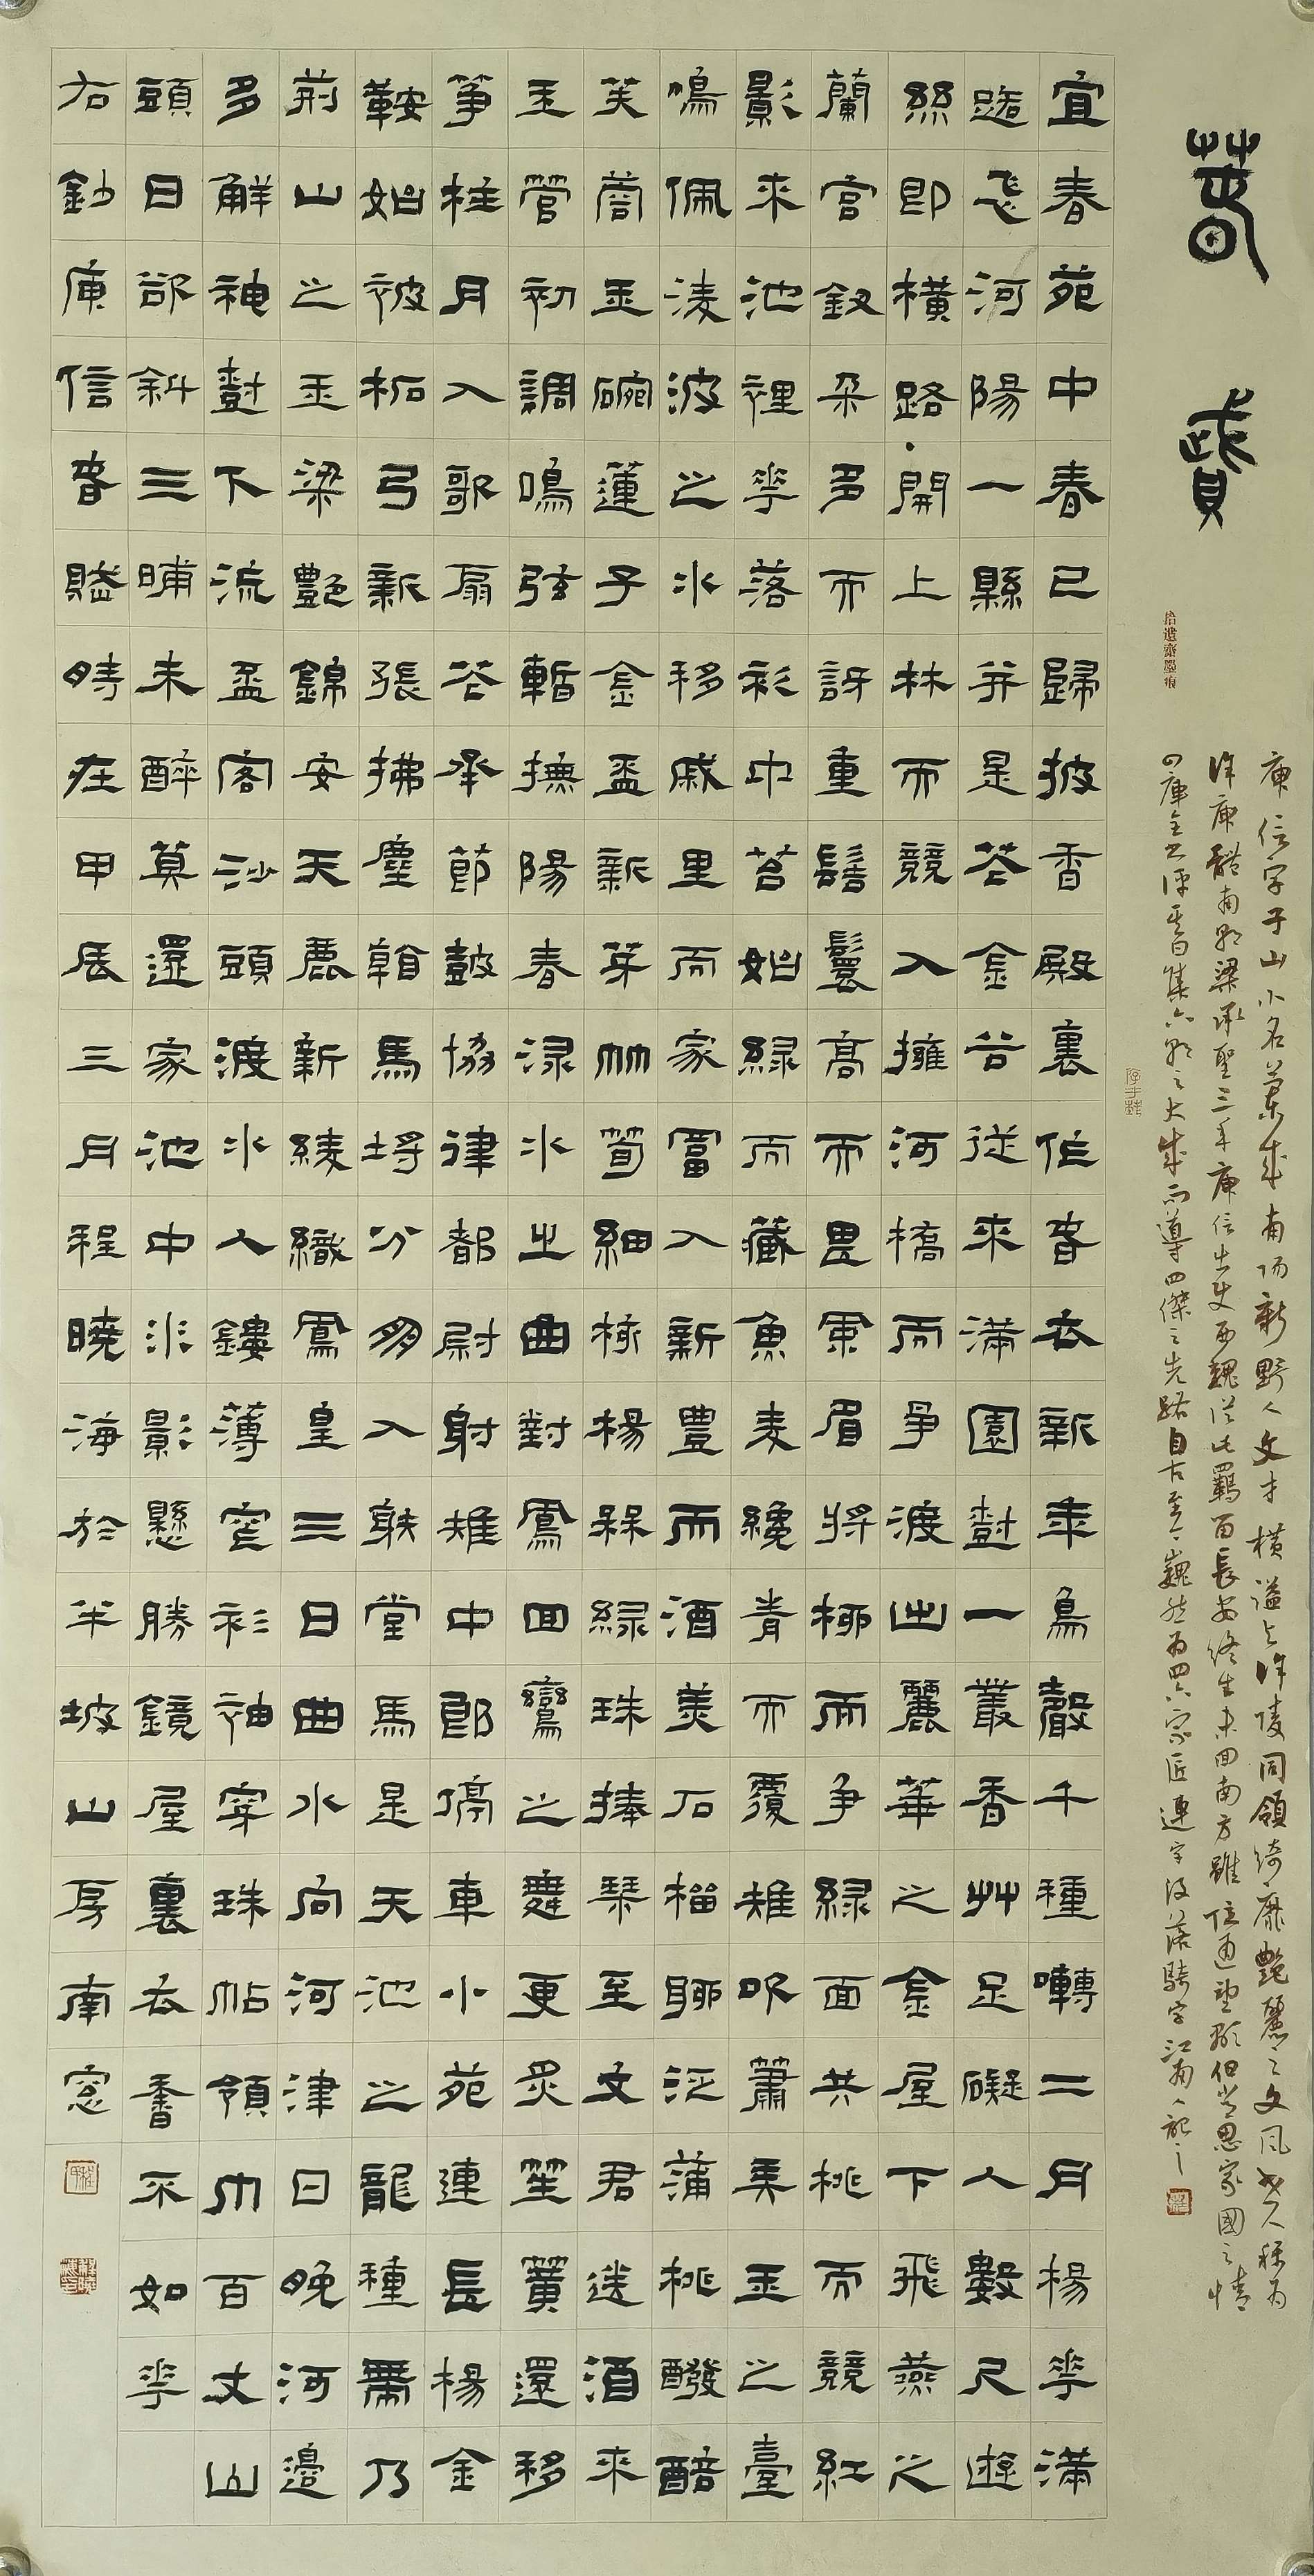 春賦
拾遺齋墨痕
庾信字子山小名蘭成南陽新野人文才橫溢與徐陵同領綺靡艷麗之文風世人稱為
徐庾體南朝梁承聖三年庾信出使西魏從此羈留長安終生未回南方雖位通望顯但常思家國之情
四庫全書評其曰集六朝之大成而導四傑之先路自古至今巍然為四六宗匠連字後落騎字江南人記之
宜春苑中春已歸披香殿裏作春衣新年鳥聲千種囀二月楊華滿
路飛河陽一縣并是花金谷從來滿園樹一叢香艸足礙人數尺遊
絲即橫路開上林而競入擁河橋而爭渡出麗華之金屋下飛燕之
蘭宮釵朵多而訝重髻鬟高而畏風眉將柳而爭綠面共桃而競紅
影來池裡華落衫中苔始綠而藏魚麥纔青而覆雉吹簫弄玉之臺
鳴佩淩波之水移戚里而家富入新豐而酒美石榴聊泛蒲桃醱醅
芙蓉玉碗蓮子金盃新芽竹筍細核楊梅綠珠捧琴至文君送酒來
玉管初調鳴弦暫撫陽春淥水之曲對鳳回鸞之舞更炙笙簧還移
箏柱月入歌扇花承節鼓協律都尉射雉中郎停車小苑連長楊金
鞍始被柘弓新張拂塵看馬埒分朋入射堂馬是天池之龍種帶乃
荊山之玉梁艷錦安天鹿新綾織鳳皇三日曲水向河津日晚河邊
多解神樹下流盃客沙頭渡水人鏤薄窄衫袖穿珠帖領巾百丈山
頭日欲斜三晡未醉莫還家池中水影懸勝鏡屋裏衣香不如華
右鈔庾信春賦時在甲辰三月程曉海於半坡山房南窗